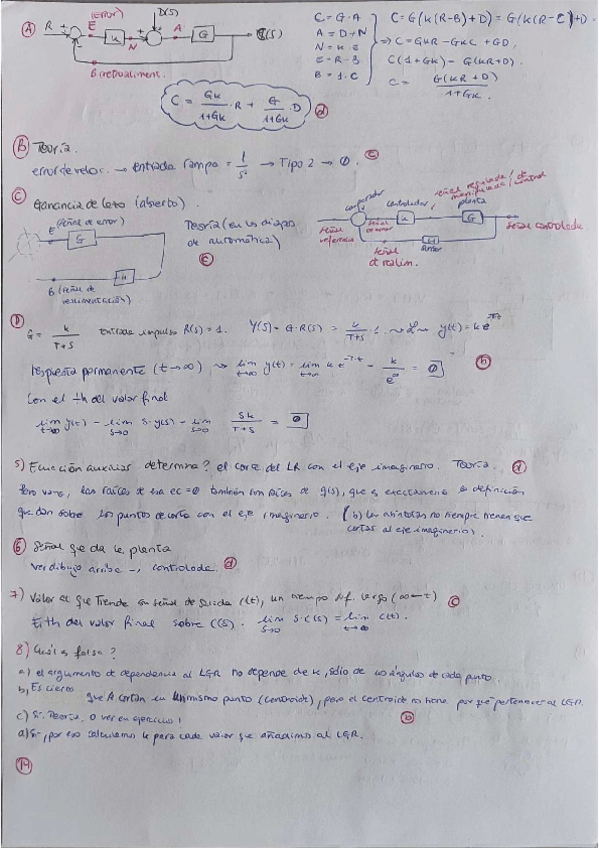 (A) R E (ERROR) K N D(S) A G C(S)
B retroaliment.
C = G·A
A = D+N
N = K·E
E = R-B
B = 1·C
C = G(K(R-B)+D) = G(K(R-C)+D.
⇒ C = GKR - GKC + GD,
C(1+GK) = G(KR+D).
C = G(KR+D) / 1+GK
C = GK/1+GK · R + G/1+GK · D (d)
(B) Teoría.
error de veloc. → entrada rampa = 1/s² → Tipo 2 → 0. (c)
(C) Ganancia de lazo (abierto).
E (señal de error) G
B (señal de realimentación) H
Teoría (en las diapos de automática)
comparador controlador planta
señal referencia
señal de error
señal controlada
señal d realim.
(D) G = K/T+S entrada impulso R(S)=1. Y(S) = G·R(S) = K/T+S · 1 y(t) = k e^-Tt
respuesta permanente (t→∞) lim t→∞ y(t) = lim t→∞ k e^-T·t = k/e^∞ = 0 (b)
Con el th del valor final
lim t→∞ y(t) = lim s→0 s·y(s) = lim s→0 sk/T+s = 0
5) Ecuación auxiliar determina? el corte del LR con el eje imaginario. Teoría. (d)
las raíces de esa ec=0 también son raíces de q(s), que es exactamente la definición
que dan sobre los puntos de corte con el eje imaginario. (b) las asíntotas no siempre tienen que
cortar al eje imaginario).
(6) Señal que da la planta
ver dibujo arriba → controlada. (d)
7) Valor al que tiende señal de salida c(t), un tiempo inf. largo (∞←t) (c)
El th del valor final sobre C(S). lim s→0 S·C(S) = lim t→∞ c(t).
8) Cuál es falsa?
a) el argumento de dependencia al LGR no depende de k, sólo de los ángulos de cada punto.
b) Es cierto que A cortan en un mismo punto (centroide), pero el centroide no tiene por qué pertenecer al LGR.
c) Sí. Teoría, o ver en ejercicio 1 (b)
d) Sí, por eso calculamos k para cada valor que añadimos al LGR.